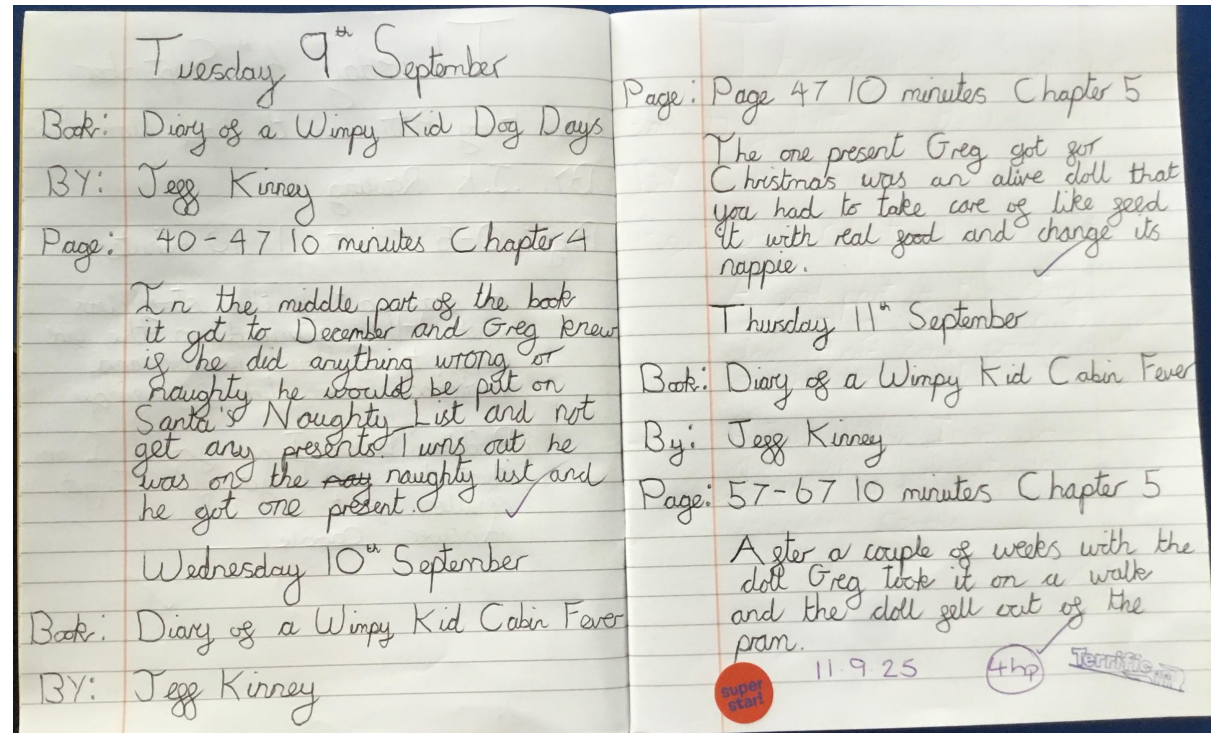 Tuesday 9th September
Book: Diary of a Wimpy Kid Dog Days
BY: Jeff Kinney
Page: 40-47 10 minutes Chapter 4
In the middle part of the book
it got to December and Greg knew
if he did anything wrong or
naughty he would be put on
Santa's Naughty List and not
get any presents. Turns out he
was on the nay naughty list and
he got one present.
Wednesday 10th September
Book: Diary of a Wimpy Kid Cabin Fever
BY: Jeff Kinney
Page: Page 47 10 minutes Chapter 5
The one present Greg got for
Christmas was an alive doll that
you had to take care of like feed
it with real food and change its
nappie.
Thursday 11th September
Book: Diary of a Wimpy Kid Cabin Fever
By: Jeff Kinney
Page: 57-67 10 minutes Chapter 5
After a couple of weeks with the
doll Greg took it on a walk
and the doll fell out of the
pram.
11.9.25 4hp Terrific
super
star!